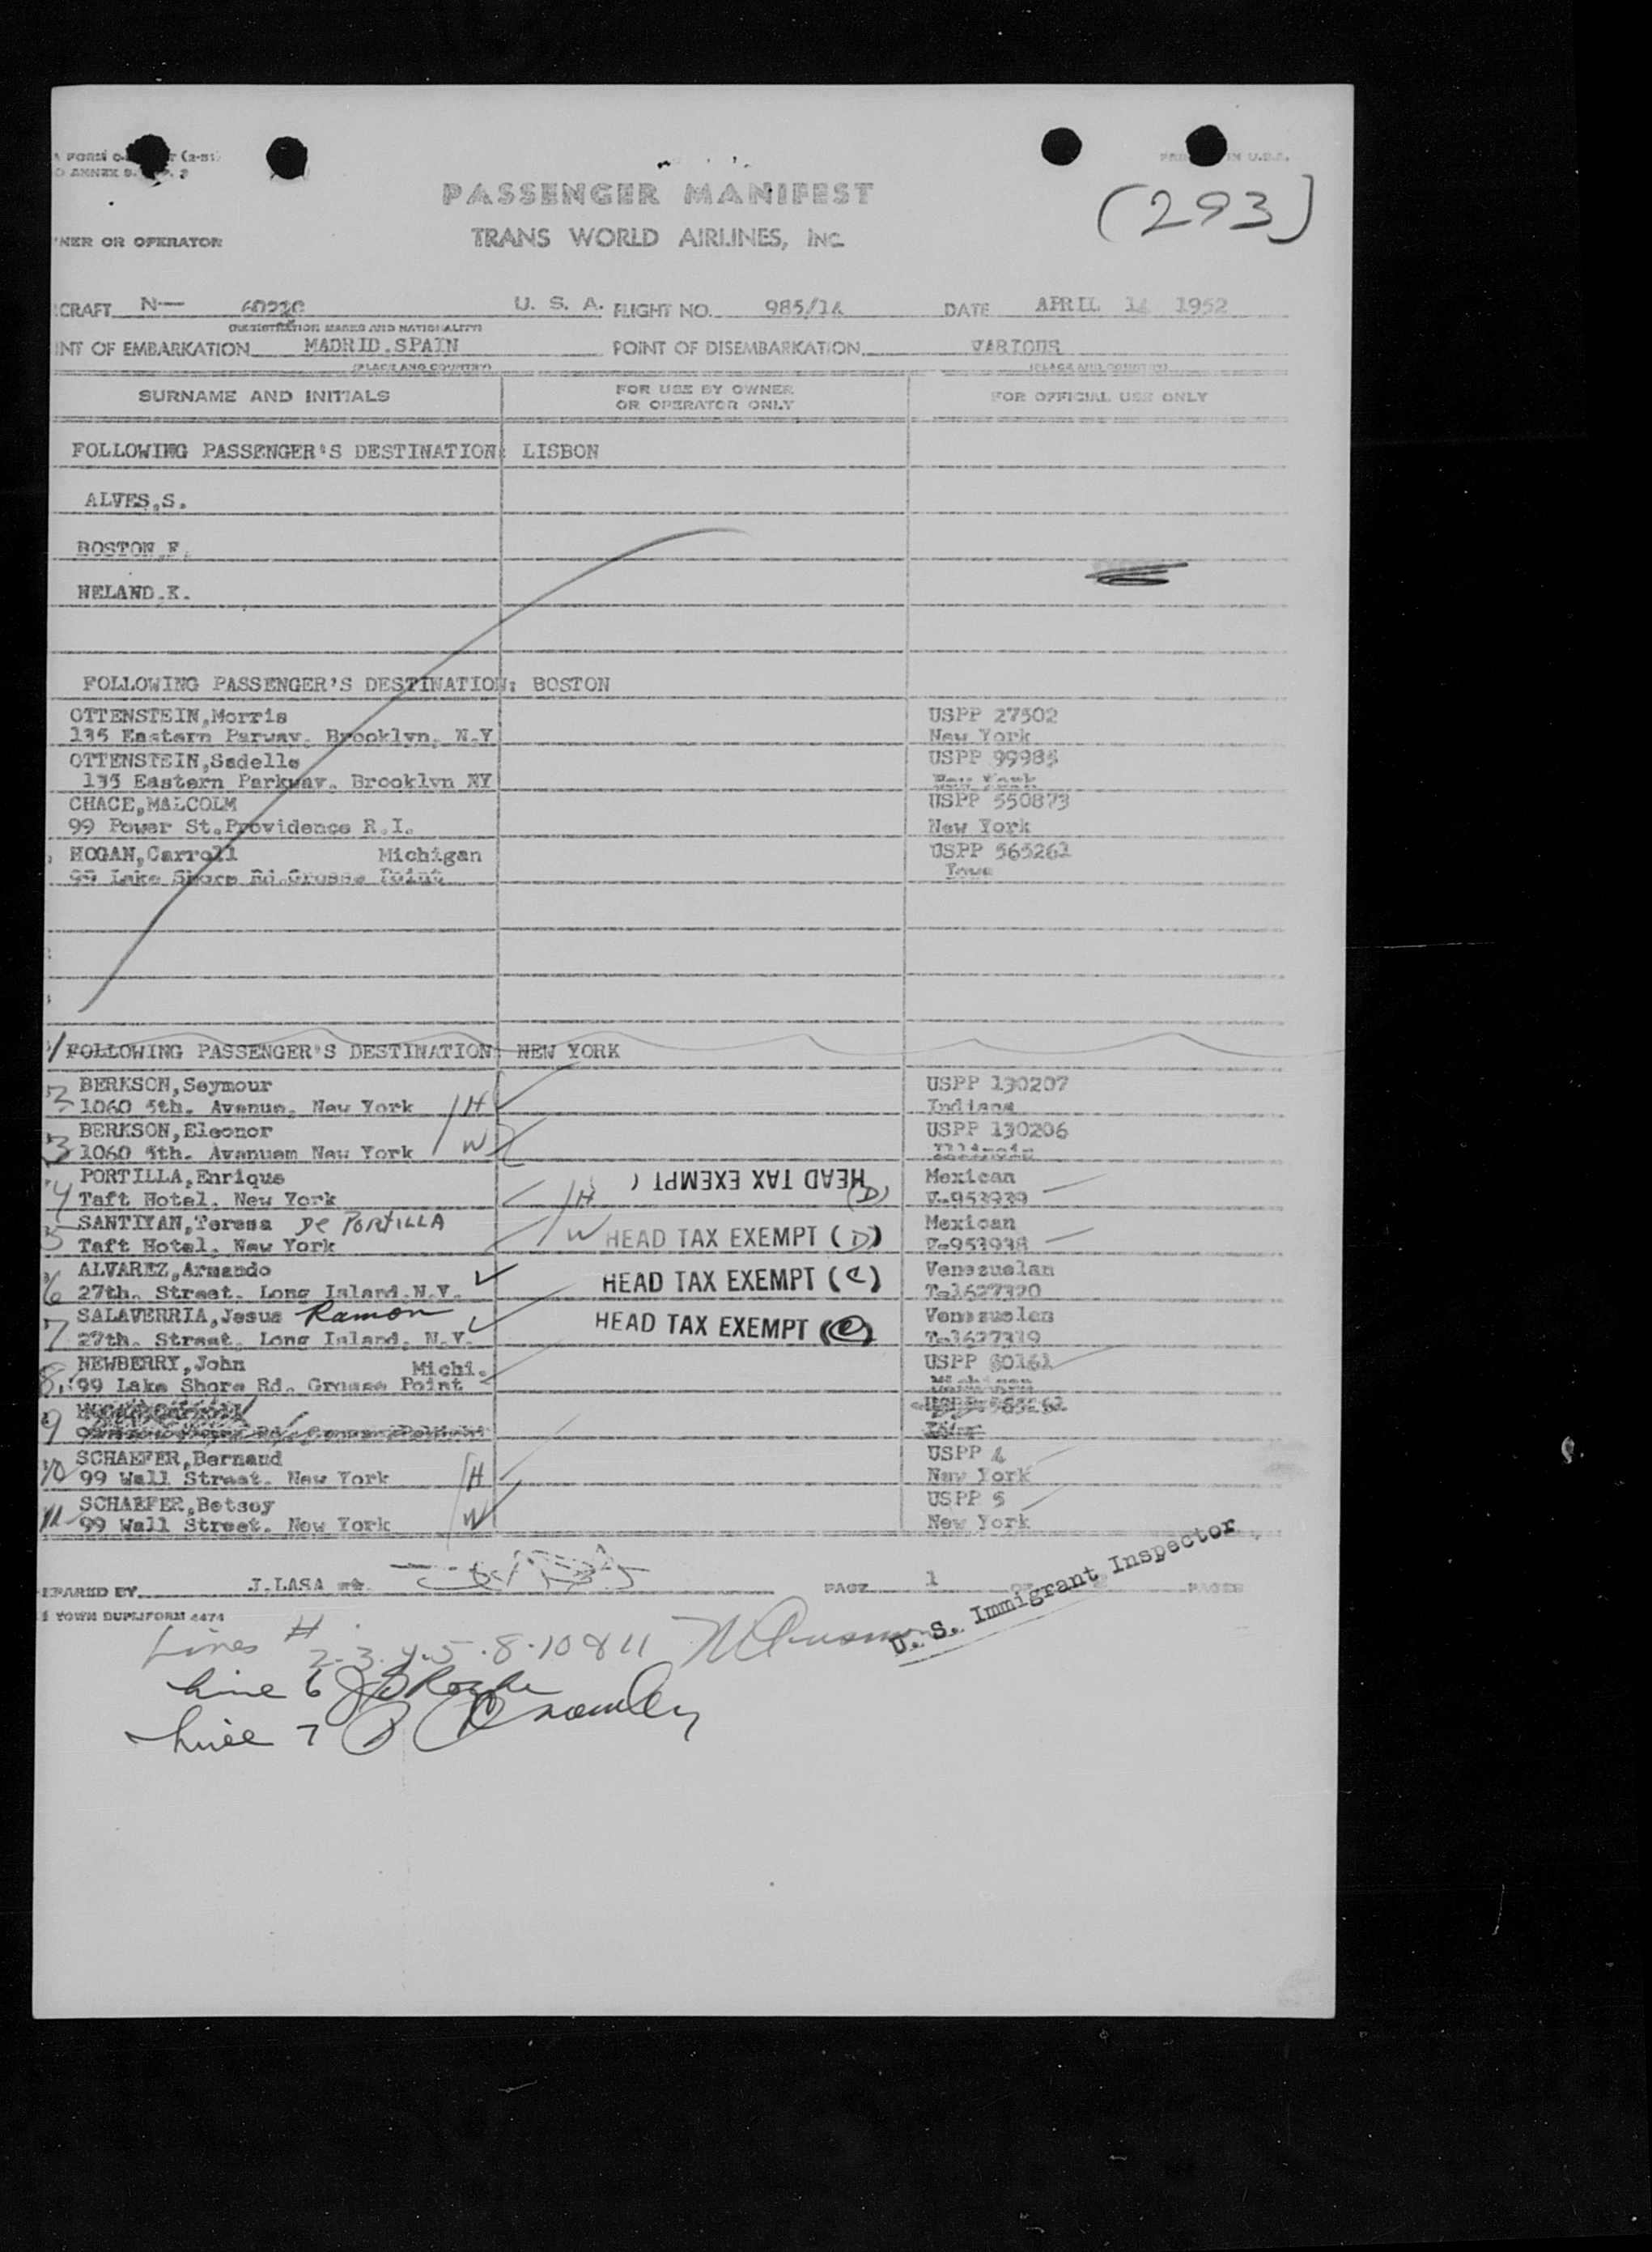 PASSENGER MANIFEST
(293)
TRANS WORLD AIRLINES, INC
NER OR OPERATOR
CRAFT N— U. S. A. FLIGHT NO. 985/14 DATE APRIL 14 1952
(REGISTRATION MARKS AND NATIONALITY)
INT OF EMBARKATION MADRID.SPAIN POINT OF DISEMBARKATION VARIOUS
(PLACE AND COUNTRY) (PLACE AND COUNTRY)
SURNAME AND INITIALS FOR USE BY OWNER OR OPERATOR ONLY FOR OFFICIAL USE ONLY
FOLLOWING PASSENGER'S DESTINATION: LISBON
ALVES,S.
BOSTON F.
NELAND.K.
FOLLOWING PASSENGER'S DESTINATION: BOSTON
OTTENSTEIN,Morris USPP 27502
135 Eastern Parway. Brooklyn. N.Y New York
OTTENSTEIN,Sadelle USPP 99985
135 Eastern Parkway. Brooklyn NY New York
CHACE,MALCOLM USPP 550873
99 Power St.Providence R.I. New York
HOGAN,Carroll Michigan USPP 565261
99 Lake Shore Rd.Grosse Point Iowa
1 FOLLOWING PASSENGER'S DESTINATION: NEW YORK
2 BERKSON,Seymour USPP 130207
1060 5th. Avenue. New York H Indiana
3 BERKSON,Eleonor USPP 130206
1060 5th. Avanuem New York W Illinois
4 PORTILLA,Enrique HEAD TAX EXEMPT ( Mexican
Taft Hotel. New York H (D) V-953939
5 SANTIYAN,Teresa De PORTILLA Mexican
Taft Hotel. New York W HEAD TAX EXEMPT (D) V-953938
6 ALVAREZ,Armando HEAD TAX EXEMPT (C) Venezuelan
27th. Street. Long Island.N.Y. T-1627320
7 SALAVERRIA,Jesus Ramon HEAD TAX EXEMPT (C) Venezuelan
27th. Street. Long Island. N.Y. T-1627319
8 NEWBERRY,John Michi. USPP 60161
99 Lake Shore Rd. Grosse Point Michigan
9
10 SCHAEFER,Bernaud USPP 4
99 Wall Street. New York H New York
11 SCHAEFER,Betsey USPP 5
99 Wall Street. New York W New York
EPARED BY J.LASA PAGE 1 OF PAGES
TOWN DUPLIFORM 4474
U. S. Immigrant Inspector
Lines # 2.3.4.5.8.10 & 11
Line 6
Line 7